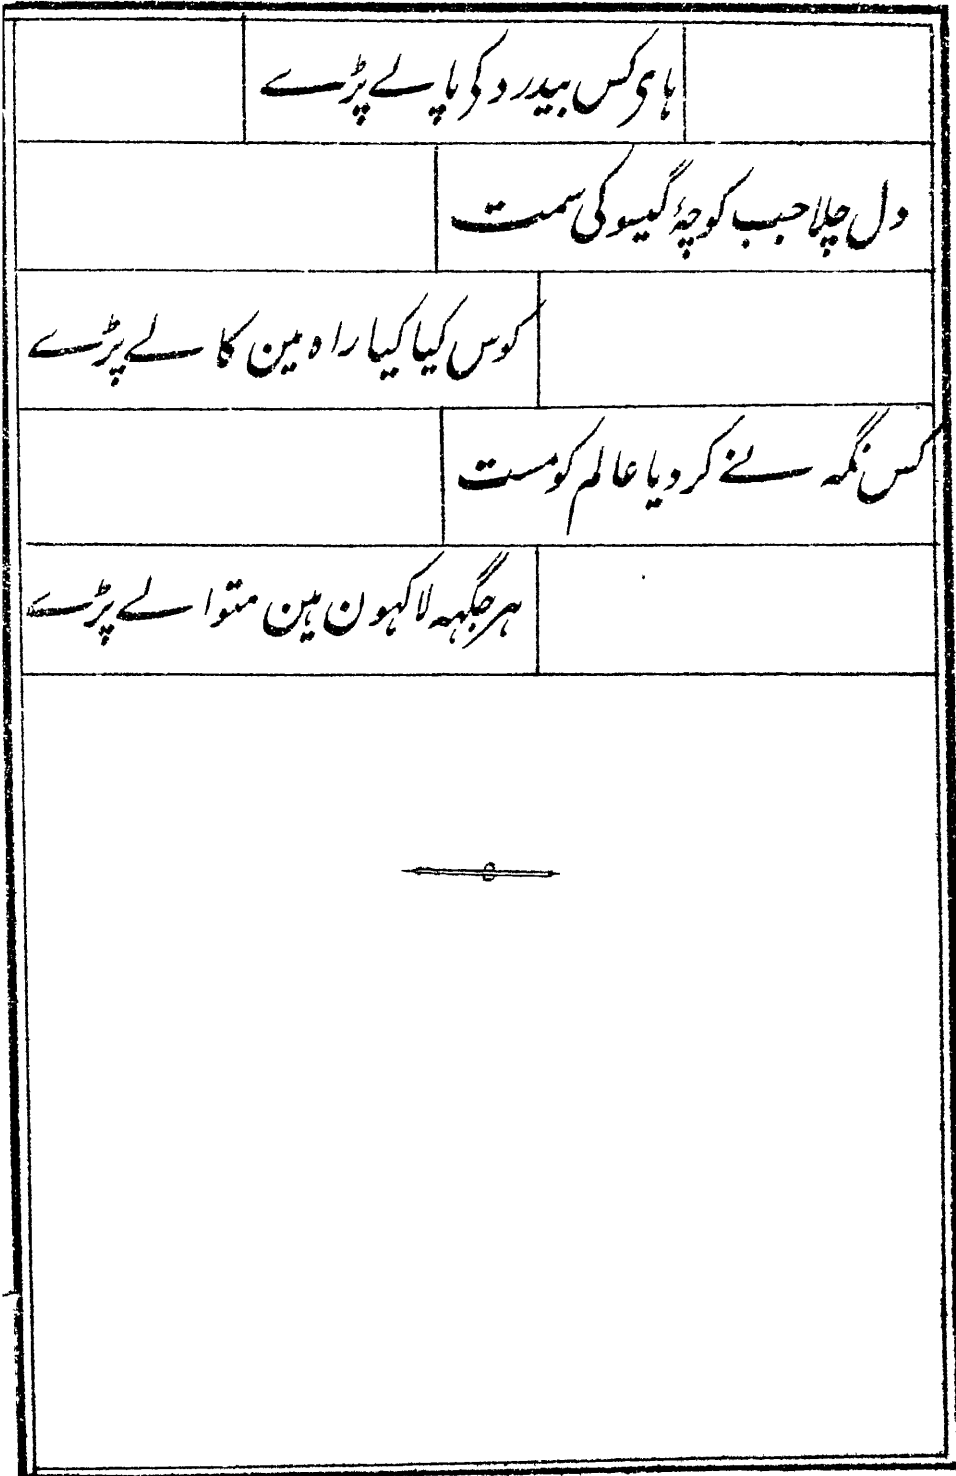 ہای کس بیدرد کی پالے پڑے
دل چلا جب کوچۂ گیسو کی سمت
کوس کیا کیا راہ مین کالے پڑے
کس نگہ نے کر دیا عالم کو مست
ہر جگہہ لاکہون مین متوالے پڑے